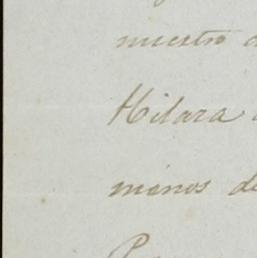 nuestro
Hilara
menos de